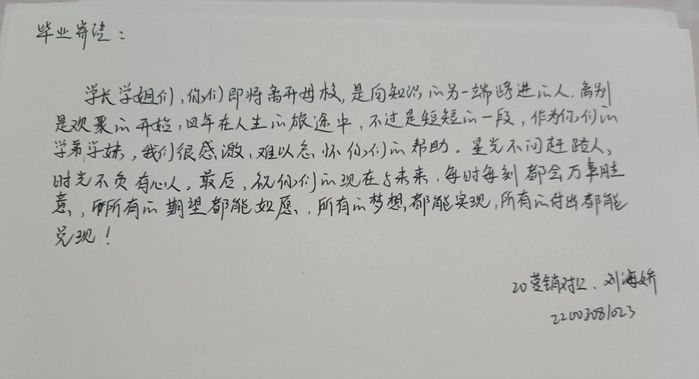 毕业寄语：
学长学姐们，你们即将离开母校，是向知识的另一端跨进的人。离别
是欢聚的开始，四年在人生的旅途中，不过是短短的一段，作为你们的
学弟学妹，我们很感激，难以忘怀你们的帮助。星光不问赶路人，
时光不负有心人。最后，祝你们的现在与未来，每时每刻都会万事胜
意，所有的期望都能如愿，所有的梦想都能实现，所有的付出都能
兑现！
20营销对口、刘海娇
22003081023